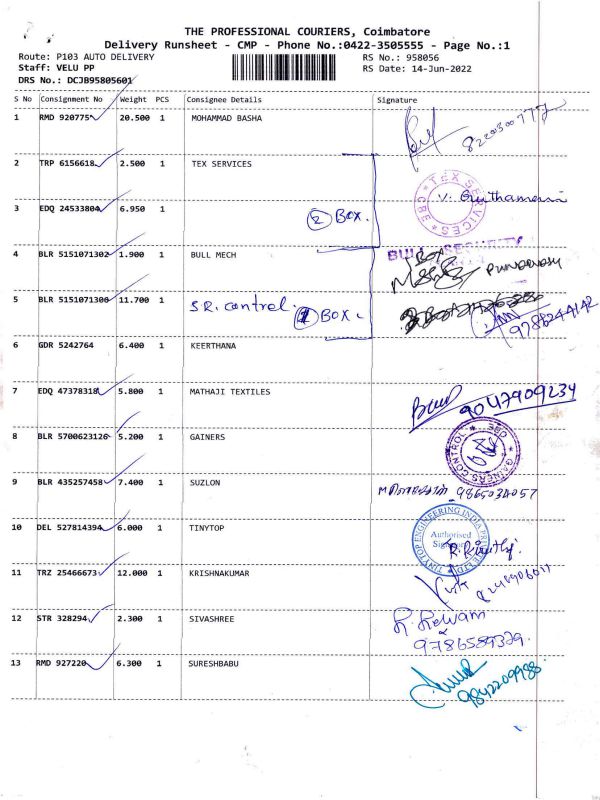 THE PROFESSIONAL COURIERS, Coimbatore
Delivery Runsheet - CMP - Phone No.:0422-3505555 - Page No.:1
Route: P103 AUTO DELIVERY
RS No.: 958056
Staff: VELU PP
RS Date: 14-Jun-2022
DRS No.: DCJB95805601
S No Consignment No Weight PCS Consignee Details Signature
1 RMD 920775 20.500 1 MOHAMMAD BASHA
2 TRP 6156618 2.500 1 TEX SERVICES
TEX SERVICES * CBE *
3 EDQ 24533804 6.950 1
2 BOX.
4 BLR 5151071302 1.900 1 BULL MECH
BOX
5 BLR 5151071300 11.700 1 S.R. control.
BOX
9786244142
6 GDR 5242764 6.400 1 KEERTHANA
7 EDQ 47378318 5.800 1 MATHAJI TEXTILES
9047909234
8 BLR 5700623126 5.200 1 GAINERS
GAINERS CONTROL * CBE *
9 BLR 435257458 7.400 1 SUZLON
9865034057
10 DEL 527814394 6.000 1 TINYTOP
TINYTOP ENGINEERING INDIA PRIVATE LTD
Authorised
11 TRZ 25466673 12.000 1 KRISHNAKUMAR
12 STR 328294 2.300 1 SIVASHREE
13 RMD 927220 6.300 1 SURESHBABU
9842209988